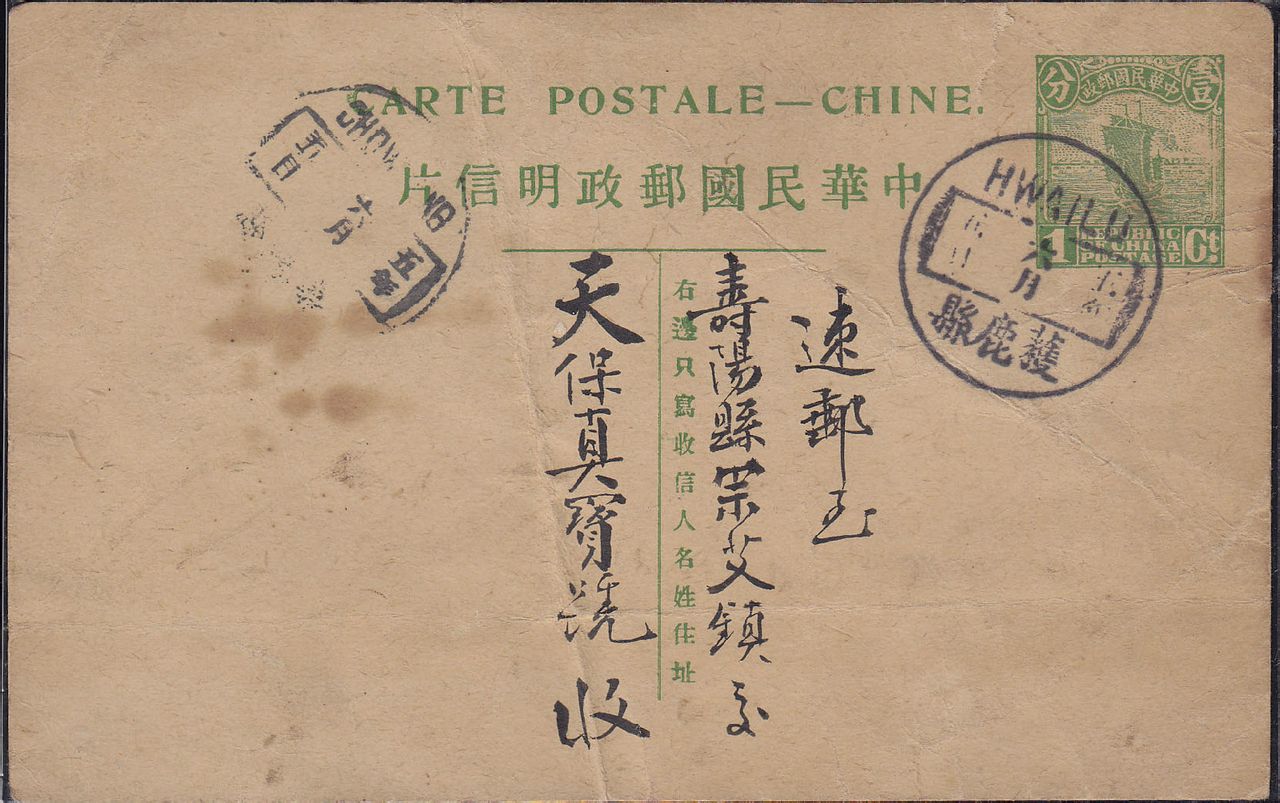 CARTE POSTALE—CHINE.
中華民國郵政明信片
分 中華民國郵政 壹
1 REPUBLIC OF CHINA POSTAGE Ct.
HWAILU
六月
獲鹿縣
SHOW
五日
六月
五年
速郵至
壽陽縣宗艾鎮交
右邊只寫收信人名姓住址
天保真寶號 收